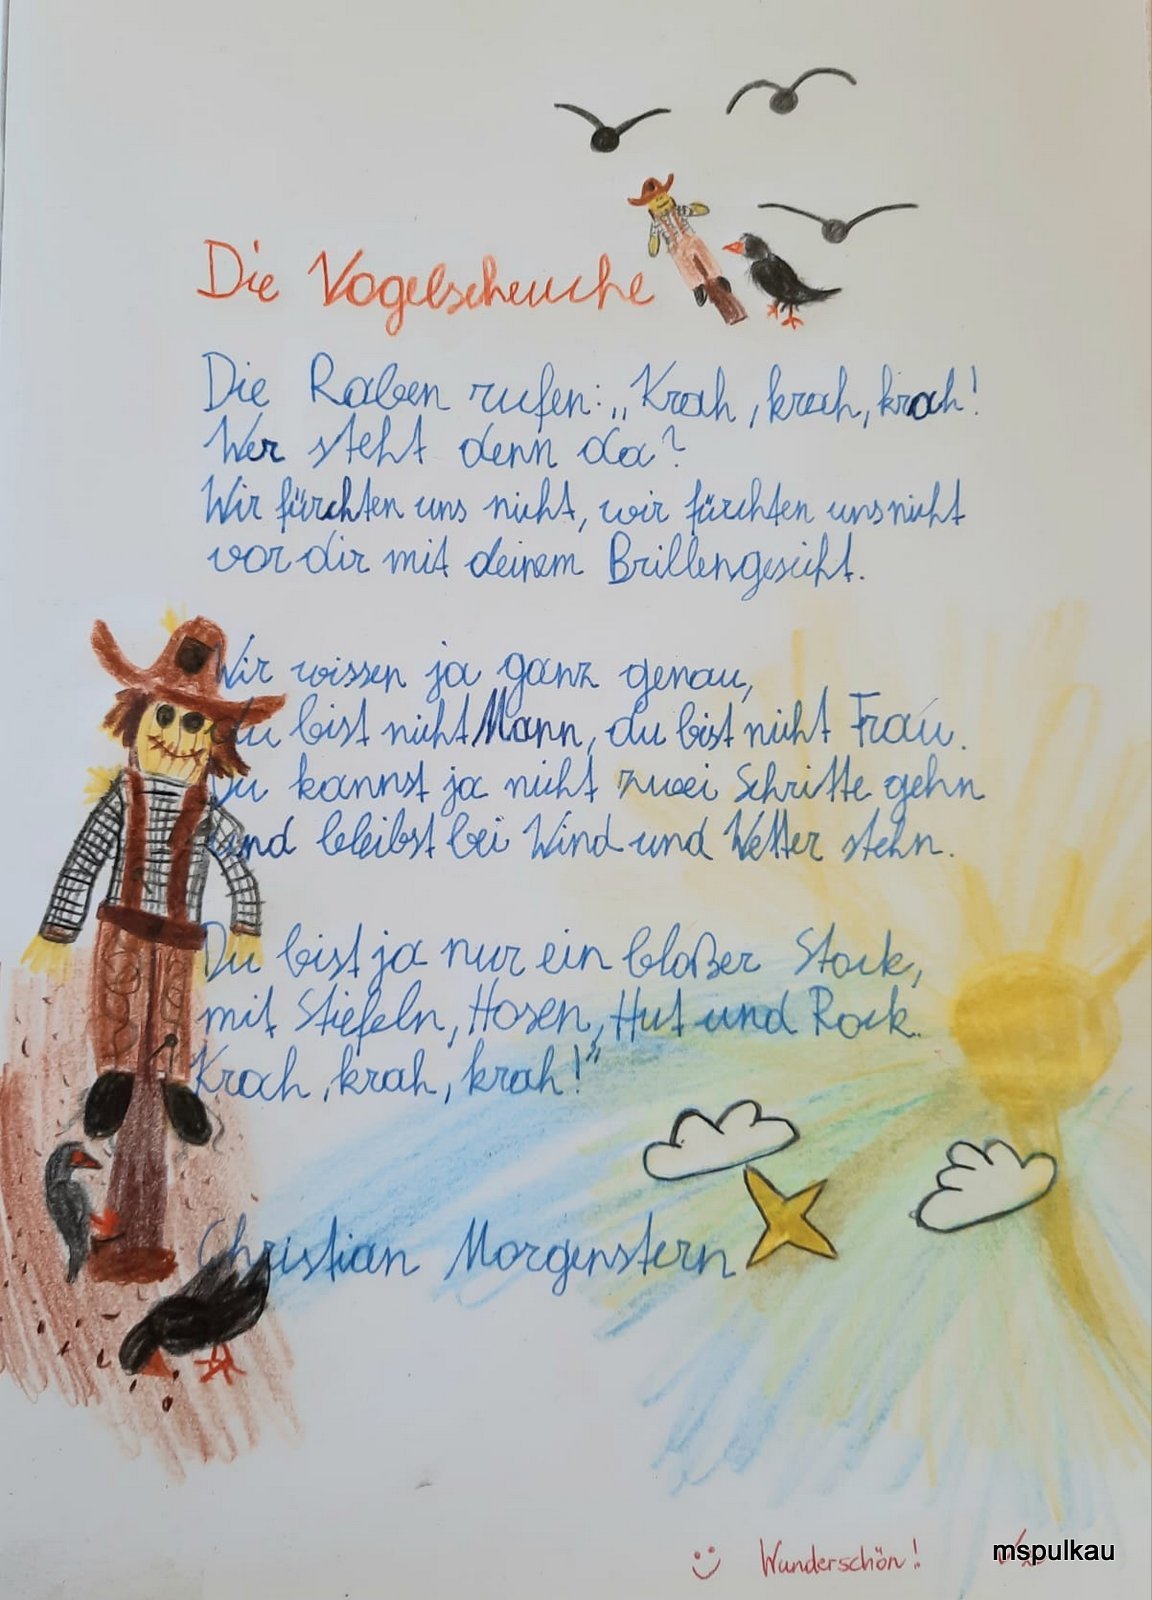 Die Vogelscheuche
Die Raben rufen: „Krah, krah, krah!
Wer steht denn da?
Wir fürchten uns nicht, wir fürchten uns nicht
vor dir mit deinem Brillengesicht.
Wir wissen ja ganz genau,
du bist nicht Mann, du bist nicht Frau.
Du kannst ja nicht zwei Schritte gehn
und bleibst bei Wind und Wetter stehn.
Du bist ja nur ein bloßer Stock,
mit Stiefeln, Hosen, Hut und Rock.
Krah, krah, krah!“
Christian Morgenstern
Wunderschön!
mspulkau